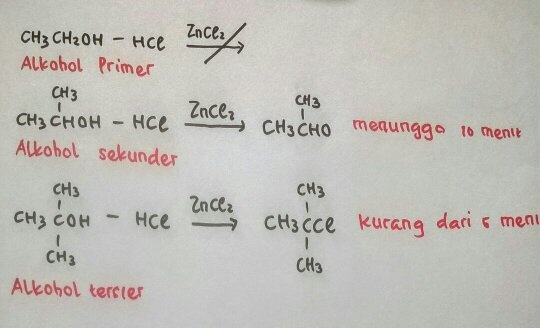 CH3CH2OH - HCl ZnCl2
Alkohol Primer
CH3
CH3CHOH - HCl ZnCl2 CH3
CH3CHO menunggo 10 menit
Alkohol sekunder
CH3
CH3COH - HCl ZnCl2 CH3
CH3CCl kurang dari 5
CH3
CH3
Alkohol tersier